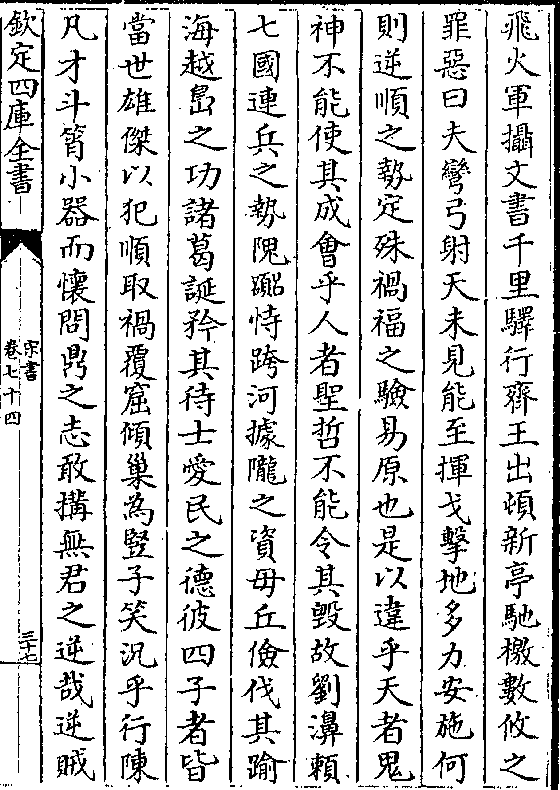 飛火軍攝文書千里驛行齊王出頓新亭馳檄數攸之
罪惡曰夫彎弓射天未見能至揮戈擊地多力安施何
則逆順之勢定殊禍福之驗易原也是以違乎天者鬼
神不能使其成㑹乎人者聖哲不能令其毁故劉濞賴
七國連兵之勢隗嚻恃跨河據隴之資毋丘儉伐其踰
海越島之功諸葛誕矜其待士愛民之德彼四子者皆
當世雄傑以犯順取禍覆窟傾巢為豎子笑況乎行陳
凡才斗筲小器而懷問鼎之志敢搆無君之逆哉逆賊
欽定四庫全書
宋書
卷七十四
三十七